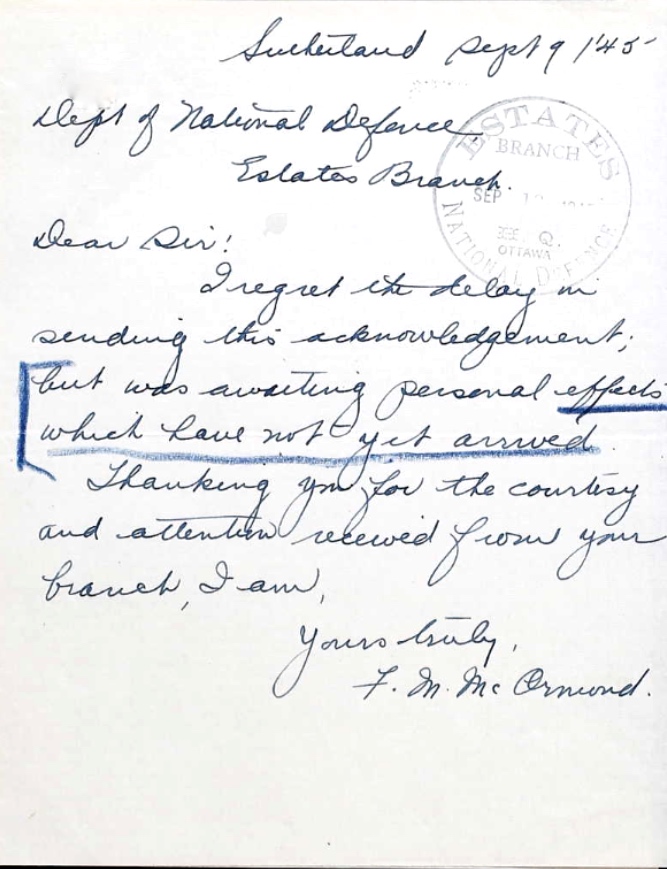 Sutherland Sept 9 /45
Dept of National Defence,
Estates Branch.
ESTATES
BRANCH
SEP
H. Q.
OTTAWA
NATIONAL DEFENCE
Dear Sir!
I regret the delay in
sending this acknowledgement;
but was awaiting personal effects
which have not yet arrived.
Thanking you for the courtesy
and attention received from your
branch, I am,
Yours truly,
F. M. McOrmond.